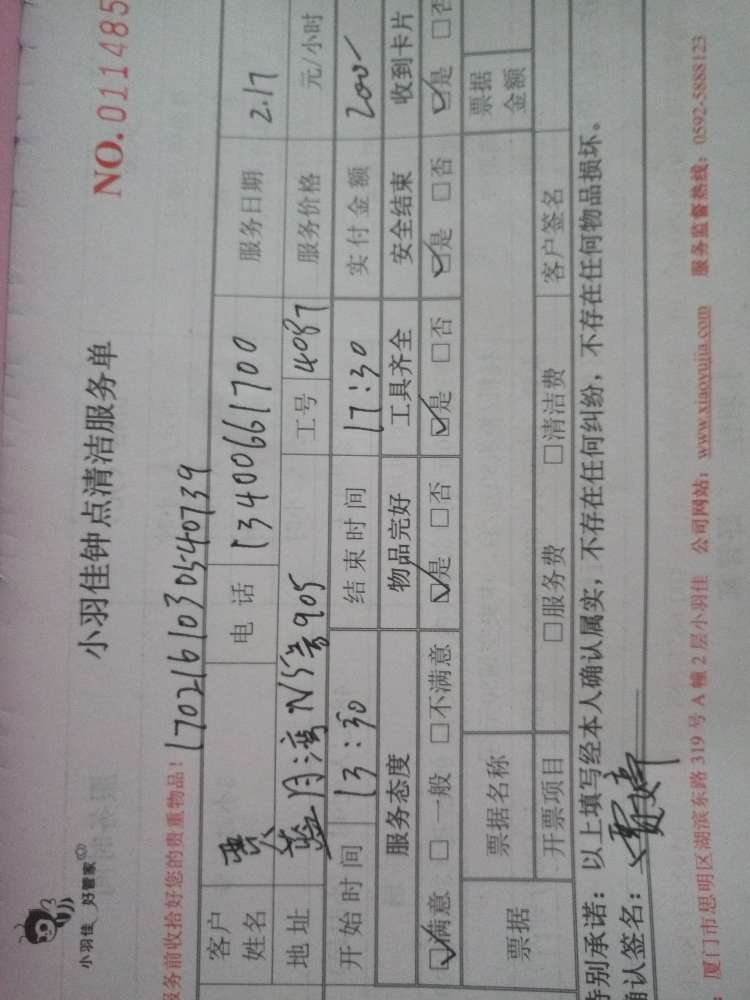 小羽佳 好管家
小羽佳钟点清洁服务单
NO.011485
服务前收拾好您的贵重物品！ 170216103054 0739
客户姓名 电话 13400661700 服务日期 2.17
地址 蓝月湾 905 工号 4087 服务价格 元/小时
开始时间 13:30 结束时间 17:30 实付金额 200
服务态度 物品完好 工具齐全 安全结束 收到卡片
☑满意 □一般 □不满意 ☑是 □否 ☑是 □否 ☑是 □否 ☑是 □否
票据 票据名称 票据金额
开票项目 □服务费 □清洁费 客户签名
特别承诺：以上填写经本人确认属实，不存在任何纠纷，不存在任何物品损坏。
确认签名：
：厦门市思明区湖滨东路319号A幢2层小羽佳 公司网站：www.xiaoyujia.com 服务监督热线：0592-5888123